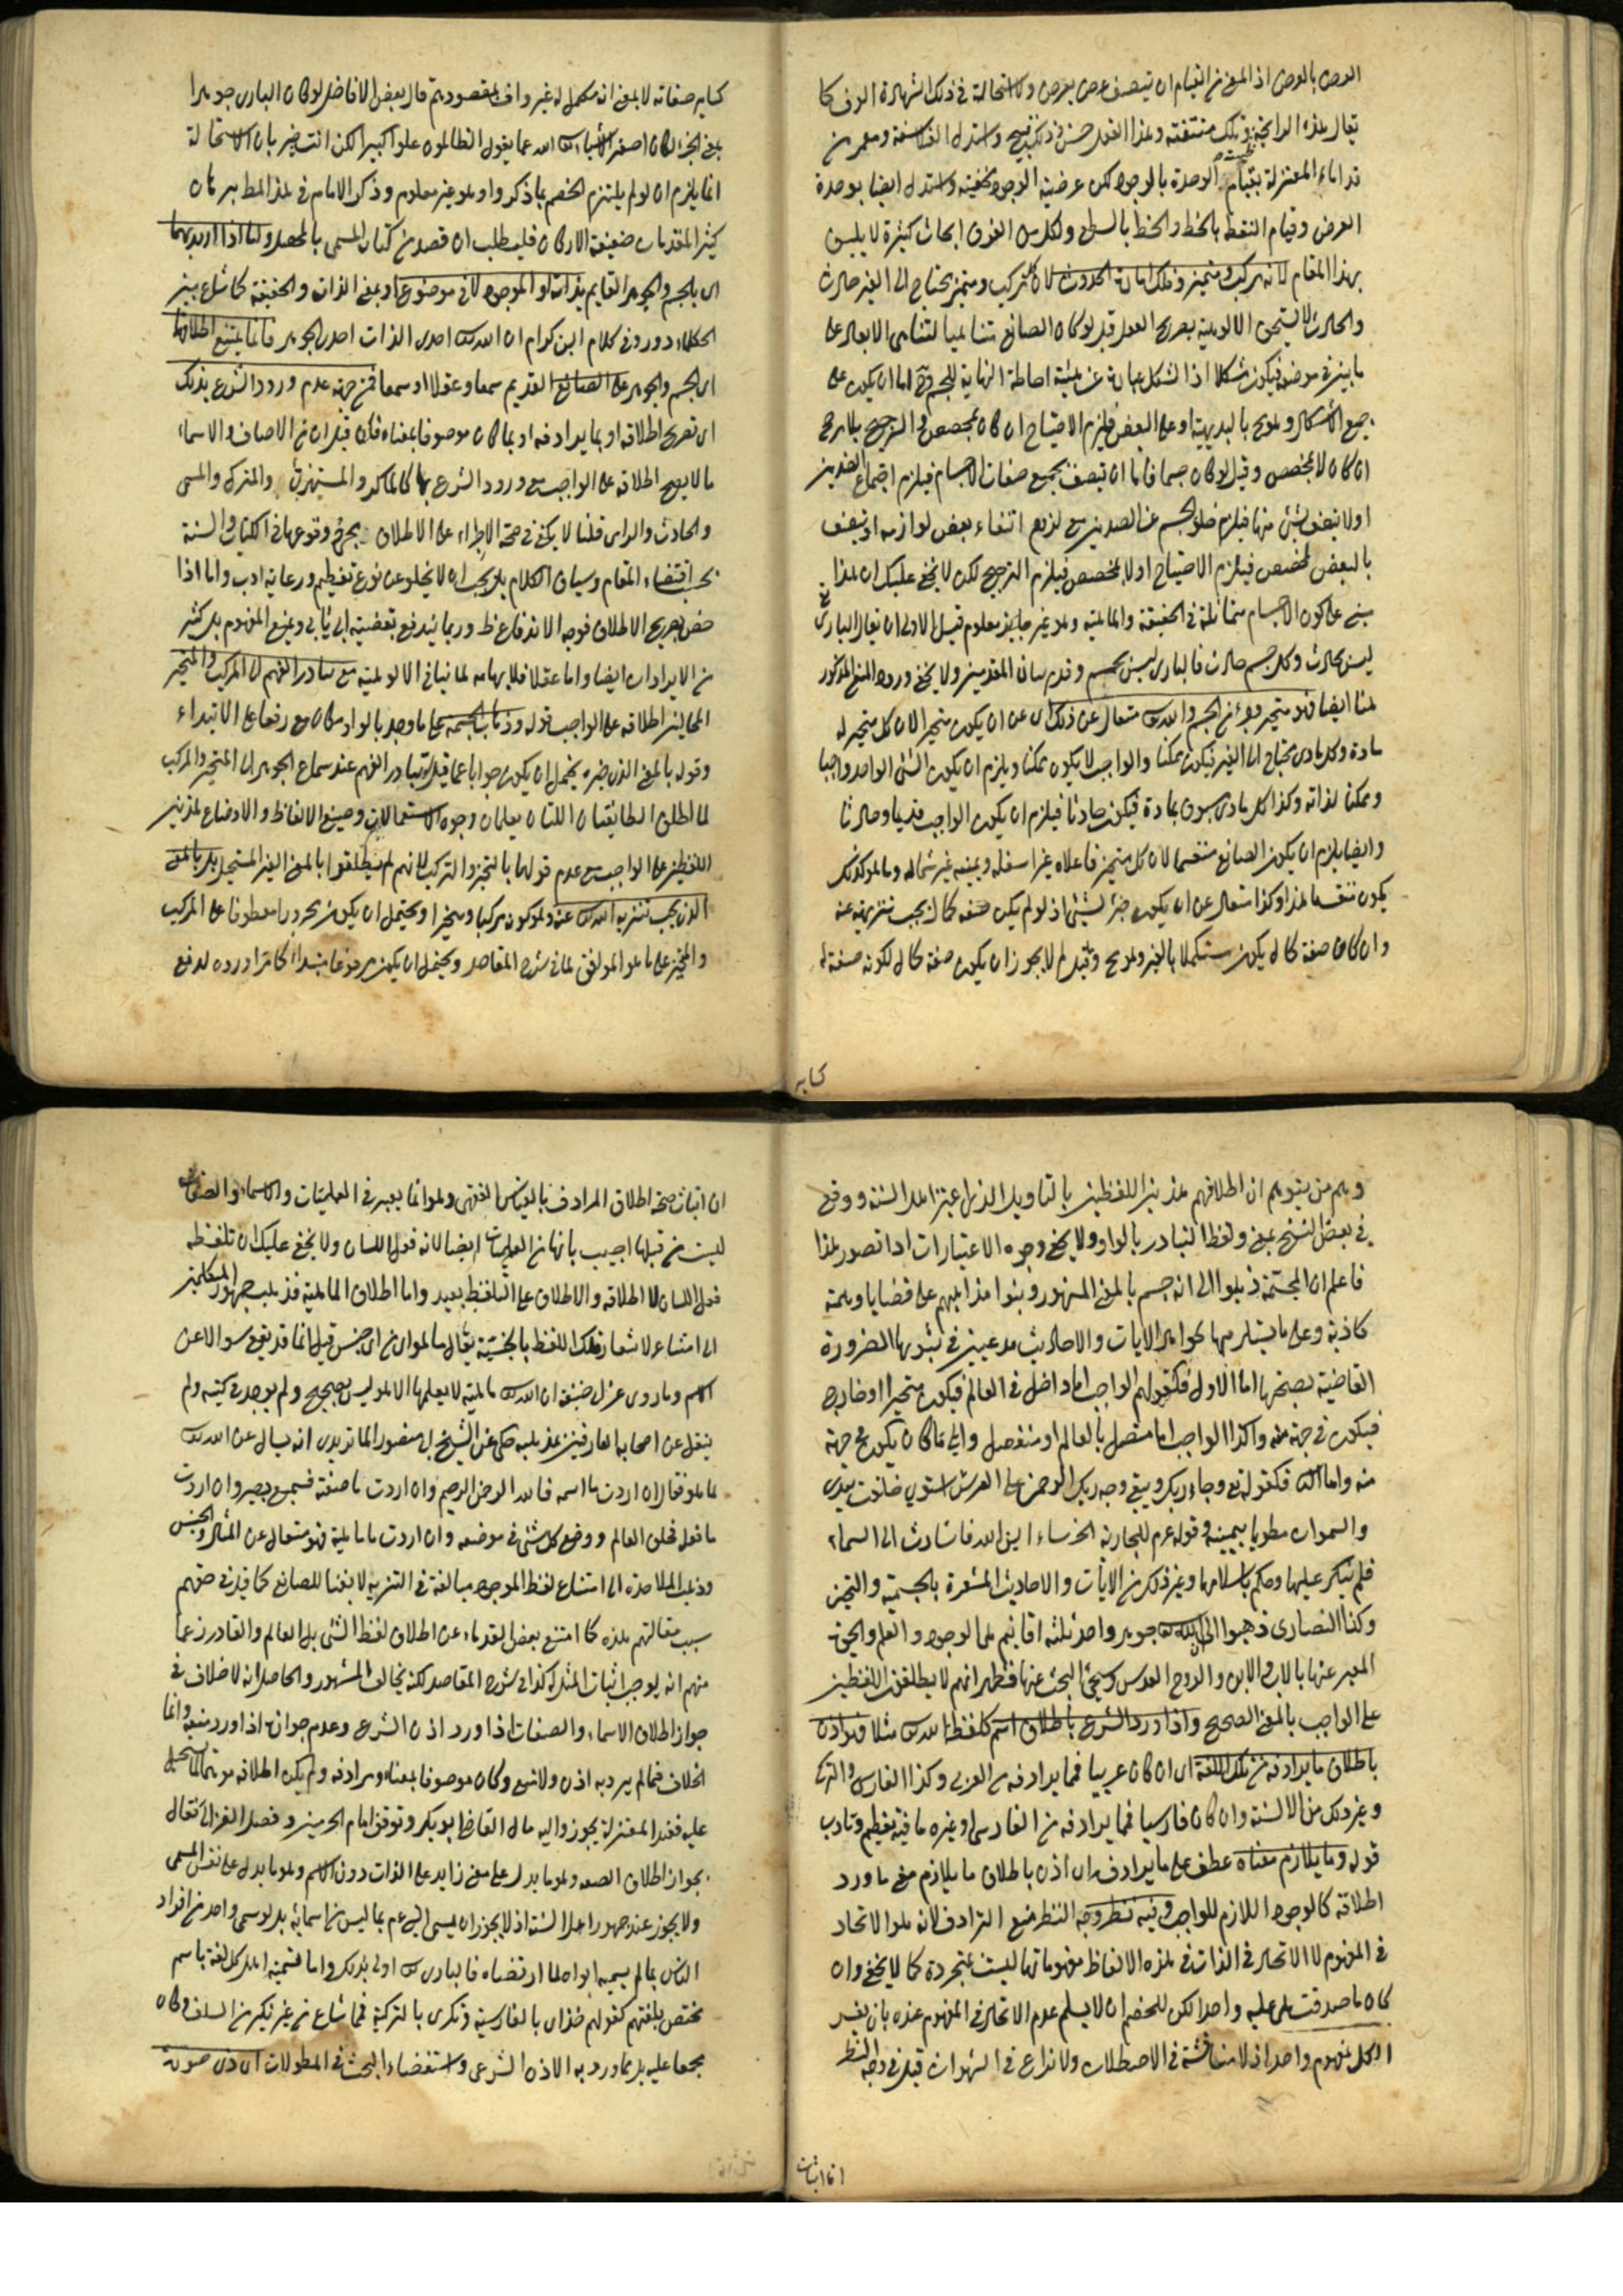 العرض بالعرض اذ المعنى من القيام ان يتصف عرض بعرض ولا استحالة في ذلك لشهادة العرف كما
يقال هذه الرايحة طيبة وتلك منتنة وهذا الفعل حسن وذلك قبيح واستدل الفلاسفة ومعمر من
قدماء المعتزلة بقيام الوحدة بالوجود لكن عرضية الوجود خفية واستدل ايضا بوحدة
العرض وقيام النقطة بالخط والخط بالسطح ولكل من الفرق ابحاث كثيرة لا يليق
بهذا المقام لانه مركب ومتحيز وذلك امارة الحدوث لان كل مركب ومتحيز يحتاج الى الغير حادث
والحادث لا يستحق الالوهية بصريح العقل قيل لو كان الصانع متناهيا لتناهى الابعاد على
ما بين في موضعه فيكون شكلا اذ الشكل عبارة عن هيئة احاطة النهاية للجسم وح اما ان يكون على
جميع الاشكال وهو مح بالبديهية او على البعض فيلزم الاحتياج ان كان بمخصص والترجيح بلا مرجح
ان كان لا بمخصص وقيل لو كان جسما فاما ان يتصف بجميع صفات الاجسام فيلزم اجتماع الضدين
او لا يتصف بشئ منها فيلزم خلو الجسم عن الضدين مع لزوم انتفاء بعض لوازمه او يتصف
بالبعض لمخصص فيلزم الاحتياج او لا بمخصص فيلزم الترجيح لكن لا يخفى عليك ان هذا
مبنى على كون الاجسام متماثلة في الحقيقة والماهية وهو غير معلوم قيل الاولى ان يقال الباري تع
ليس بحادث وكل جسم حادث فالباري ليس بجسم وقدم بيان المقدمتين ولا يخفى ورود المنع المذكور
هنا ايضا فهو متحيز وجزء من الجسم والله تعالى متعال عن ذلك اى عن ان يكون متحيزا لان كل متحيز له
مادة وكل مادى محتاج الى الغير فيكون ممكنا والواجب لا يكون ممكنا ويلزم ان يكون الشئ الواحد واجبا
وممكنا لذاته وكذا كل مادى مسبوق بمادة فيكون حادثا فيلزم ان يكون الواجب قديما وحادثا
وايضا يلزم ان يكون الصانع منقسما لان كل متحيز فاعلاه غير اسفله ويمينه غير شماله وما هو كذلك
يكون منقسما هذا وكذا متعال عن ان يكون جزء لشئ اذ لو لم يكن صفة كمال يجب تنزيهه عنه
وان كان صفة كمال يكون مستكملا بالغير وهو مح وقيل لم لا يجوز ان يكون صفة كمال لكونه صفة له
كسايه
كساير صفاته لا بمعنى انه مكمل له غير واف بمقصودهم قال بعض الافاضل لو كان الباري جوهرا
بمعنى الجزء لكان اصغر الاشياء تعالى الله عما يقول الظالمون علوا كبيرا لكن انت خبير بان الاستحالة
انما يلزم ان لو لم يلتزم الخصم بما ذكر او هو غير معلوم وذكر الامام في هذا المطلب براهين
كثيرة المقدمات ضعيفة الاركان فليطلب ان قصد من كتابه المسمى بالمحصل ولنا اذا اريد بهما
اى بالجسم والجوهر القايم بذاته او الموجود لا في موضوع او بمعنى الذات والحقيقة كما شاع بين
الحكماء وورد في كلام ابن كرام ان الله تعالى احدى الذات احدى الجوهر فانما يمتنع اطلاقهما
اى الجسم والجوهر على الصانع القديم سمعا وعقلا اما سمعا فمن جهة عدم ورود الشرع بذلك
اى تصريح اطلاقه او بما يرادفه او بما كان موصوفا بمعناه فان قيل ان من الاوصاف والاسماء
ما لا يصح اطلاقه على الواجب مع ورود الشرع بها كالماكر والمستهزئ والمنزل والمنشى
والحادث والرامى قلنا لا يكفى في صحة الاجراء على الاطلاق مجرد وقوعها في الكتاب والسنة
بحسب اقتضاء المقام وسياق الكلام بل يجب ان لا يخلو عن نوع تعظيم ورعاية ادب واما اذا
خص بصريح الاطلاق فوجه الاندفاع ظ وربما يدفع بقضيته ابى ثابى ويمنع المفهوم بل كثير
من الايرادات ايضا واما عقلا فلايهامه لما ينافى الالوهية مع تبادر الفهم الى المركب والمتحيز
المحالين اطلاقه على الواجب قوله وذهاب المجسمة على ما وجد بالواو مكان مع رفعا على الابتداء
وقوله بالمعنى الذى خبره يحتمل ان يكون جوابا عما قيل تبادر الفهم عند سماع الجوهر الى المتحيز والمركب
لما اطلق الطايفتان اللتان يعلمان وجوه الاستعمالات وصيغ الالفاظ والاوضاع هذين
اللفظين على الواجب مع عدم قولهما بالتحيز والتركيب بانهم لم يطلقوا بالمعنى الغير المستحيل بل بالمعنى
الذى يجب تنزيه الله تعالى عنه وهو كونه مركبا ومتحيزا ويحتمل ان يكون مجرورا معطوفا على المركب
والمتحيز على ما هو الموافق لما في شرح المقاصد ويحتمل ان يكون مرفوعا مبتداء كما مر اورده لدفع
وهم من يتوهم ان اطلاقهم هذين اللفظين بالتاويل الذى اعتبره اهل السنة ووقع
في بعض النسخ بمعنى ولفظ التبادر بالواو ولا يخفى وجوه الاعتبارات اذا تصور هذا
فاعلم ان المجسمة ذهبوا الى انه جسم بالمعنى المشهور وبنوا مذاهبهم على قضايا وهمية
كاذبة وعلى ما يستلزمها ظواهر الايات والاحاديث مدعيين في ثبوتها الضرورة
القاضية بصحتها اما الاول فكقولهم الواجب اما داخل في العالم فيكون متحيزا او خارج
فيكون في جهة منه وكذا الواجب اما متصل بالعالم او منفصل وايا ما كان يكون في جهة
منه واما الثانى فكقوله تع وجاء ربك ويبقى وجه ربك الرحمن على العرش استوى خلقت بيدى
والسموات مطويات بيمينه وقوله عم للجارية الخرساء اين الله فاشارت الى السماء
فلم ينكر عليها وحكم باسلامها وغير ذلك من الايات والاحاديث المشعرة بالجسمية والتحيز
وكذا النصارى ذهبوا الى ان الله جوهر واحد ثلثة اقانيم هى الوجود والعلم والحيوة
المعبر عنها بالاب والابن والروح القدس وسيجئ البحث عنها فظهر انهم لا يطلقون اللفظين
على الواجب بالمعنى الصحيح واذا ورد الشرع باطلاق اسم كلفظ الله مثلا فهو اذن
باطلاق ما يرادفه من تلك اللغة اى ان كان عربيا فما يرادفه من العربى وكذا الفارسى والتركى
وغير ذلك من الالسنة وان كان فارسيا فما يرادفه من الفارسى او غيره ما فيه تعظيم وتادب
قوله وما يلازم معناه عطف على ما يرادفه اى اذن باطلاق ما يلازم معنى ما ورد
اطلاقه كالوجود اللازم للواجب وفيه نظر وجه النظر منع الترادف لانه هو الاتحاد
في المفهوم لا الاتحاد في الذات في هذه الالفاظ مفهوماتها ليست بمتحدة كما لا يخفى وان
كان ما صدقت هى عليه واحدا لكن للخصم ان لا يسلم عدم الاتحاد في المفهوم عنده بان يفسر
الكل بمفهوم واحد اذ لا مناقشة في الاصطلاح ولا نزاع في الشهوات قيل في وجه النظر
ان اثبات
ان اثبات صحة اطلاق المرادف بالقياس الفقهى وهو انما يعتبر في العمليات والاسماء والصفات
ليست من قبلها اجيب بانها من العمليات ايضا لانه فعل اللسان ولا يخفى عليك ان تلفظه
فعل اللسان لا اطلاقه والاطلاق على التلفظ بعيد واما اطلاق الماهية فذهب جمهور المتكلمين
الى امتناعه لاشعار تلك اللفظ بالجنسية يقال ما هو اى من اى جنس قيل انما قد يقع سوالا عن
الاسم وما روى عن ابى حنيفة ان الله تعالى ماهية لا يعلمها الا هو ليس بصحيح ولم يوجد في كتبه ولم
ينقل عن اصحابه العارفين بمذهبه حكى عن الشيخ ابى منصور الماتريدى انه سال عن الله تعالى
ما هو فقال ان اردت ما اسمه فالله الرحمن الرحيم وان اردت ما صفته فسميع بصير وان اردت
ما فعله فخلق العالم ووضع كل شئ في موضعه وان اردت ما ماهيته فهو متعال عن المثال والجنس
وذهب الملاحدة الى امتناع لفظ الموجود مبالغة في التنزيه لا نفيا للصانع كما قيل في حقهم
بسبب مقالتهم هذه كما امتنع بعض القدماء عن اطلاق لفظ الشئ بل العالم والقادر زعما
منهم انه يوجب اثبات المثل له كذا في شرح المقاصد لكنه يخالف المشهور والحاصل انه لا خلاف في
جواز اطلاق الاسماء والصفات اذا ورد اذن الشرع وعدم جوازه اذا ورد منعه وانما
الخلاف فيما لم يرد به اذن ولا منع وكان موصوفا بمعناه ومرادفه ولم يكن اطلاقه موهما لما يستحيل
عليه فعند المعتزلة يجوز واليه مال القاضى ابو بكر وتوقف امام الحرمين وفصل الغزالى فقال
بجواز اطلاق الصفة وهو ما يدل على معنى زايد على الذات دون الاسم وهو ما يدل على نفس المسمى
ولا يجوز عند جمهور اهل السنة اذ لا يجوز ان يسمى النبى عم بما ليس من اسمائه بل لو سمى واحد من افراد
الناس بما لم يسميه ابواه لما ارتضاه فالباري تعالى اولى بذلك واما تسمية اهل كل لغة باسم
مختص بلغتهم كقولهم خداى بالفارسية وتكرى بالتركية فمما شاع من غير نكير من السلف وكان
مجمعا عليه بل بما ورد به الاذن الشرعى واستقصاء البحث في المطولات اى ذى صورة